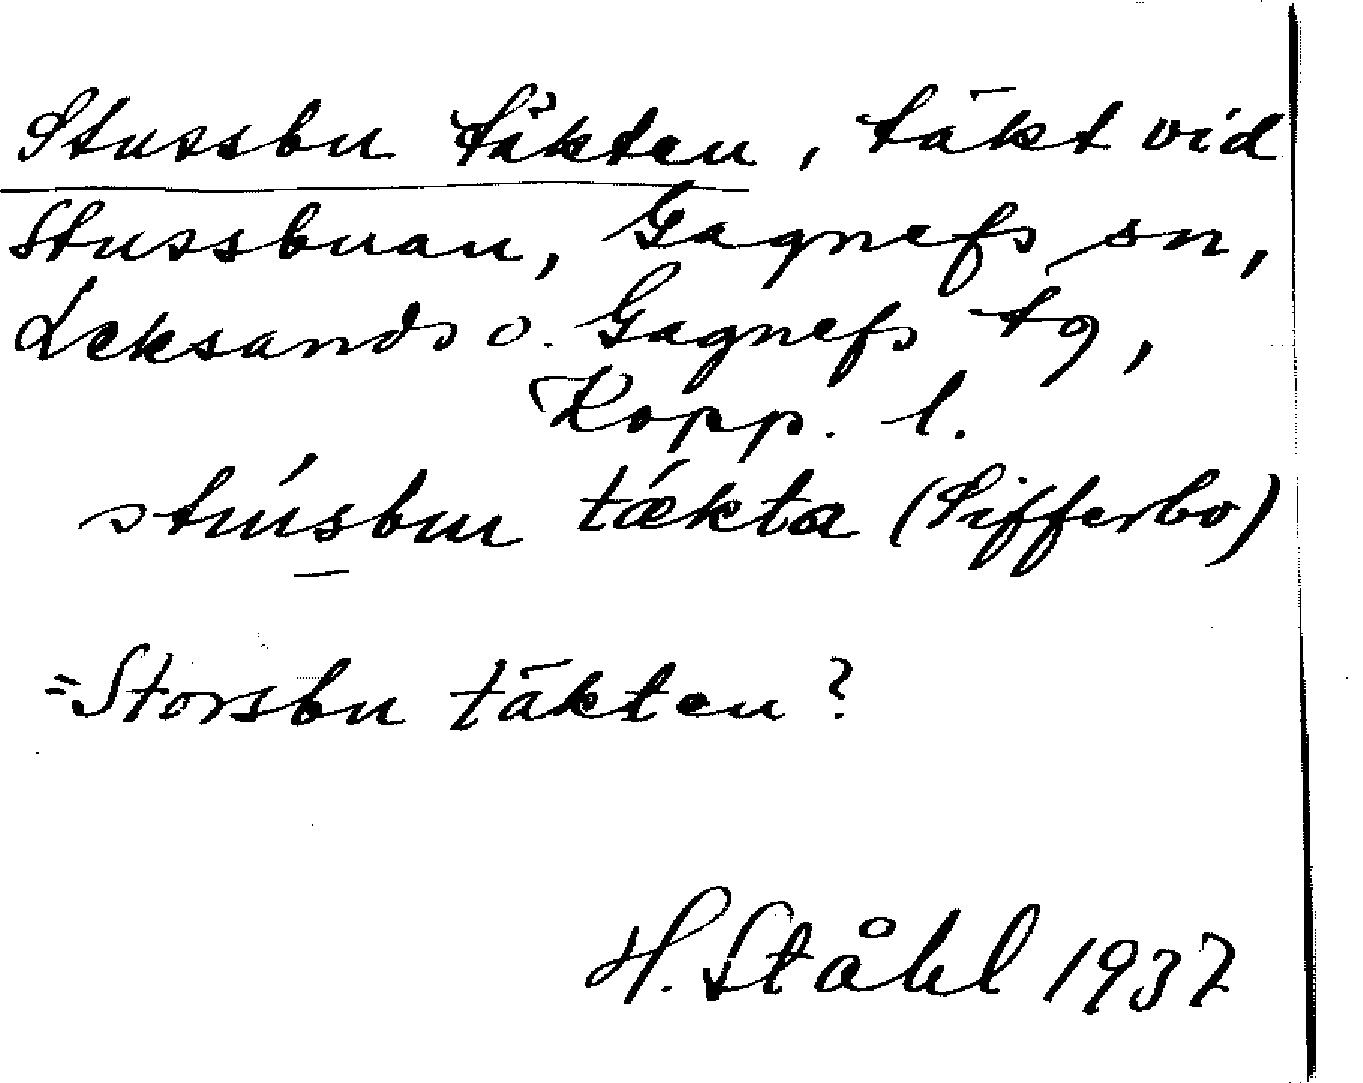 Stussbu täkten, täkt vid
Stussbuan, Gagnefs sn,
Leksands o. Gagnefs tg,
Kopp. l.
stúsbu tækta (Sifferbo)
=Storsbu täkten?
H. Ståhl 1937